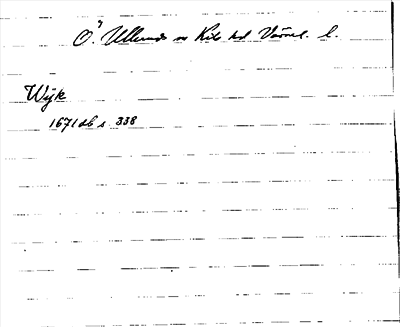 Ö. Ullerud sn Kils hd Värml. l.
Wijk
1671 db s. 338